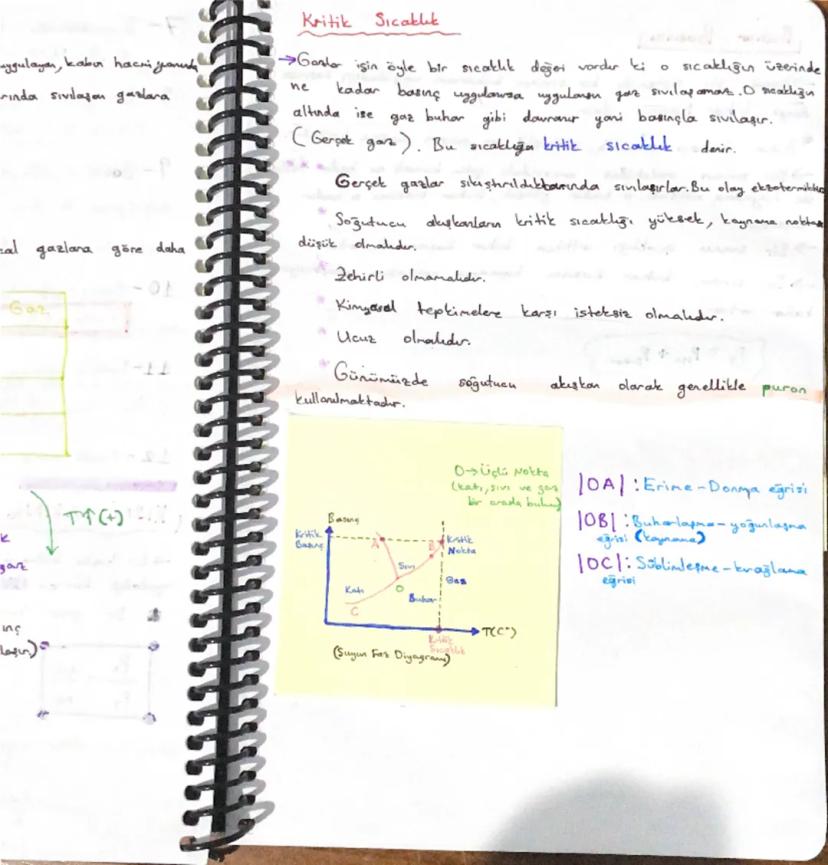 uygulayan, kabın hacmi
rında sıvılaşan gazlara
gazlara göre daha
Gaz
T↑(+)
Kritik Sıcaklık
→Gazlar için öyle bir sıcaklık değeri vardır ki o sıcaklığın üzerinde
ne kadar basınç uygulanırsa uygulansın gaz sıvılaşamaz. O sıcaklığın
altında ise gaz buhar gibi davranır yani basınçla sıvılaşır.
(Gerçek gaz). Bu sıcaklığa kritik sıcaklık denir.
* Gerçek gazlar sıkıştırıldıklarında sıvılaşırlar. Bu olay
* Soğutucu akışkanların kritik sıcaklığı yüksek, kaynama
düşük olmalıdır.
* Zehirli olmamalıdır.
* Kimyasal tepkimelere karşı isteksiz olmalıdır.
* Ucuz olmalıdır.
* Günümüzde soğutucu akışkan olarak genellikle puron
kullanılmaktadır.
O→Üçlü Nokta
(katı, sıvı ve gaz
bir arada bulunur)
Basınç
Kritik
Basınç
A
B
Kritik
Nokta
Sıvı
Katı
O
Gaz
Buhar
C
T(C°)
Kritik
Sıcaklık
(Suyun Faz Diyagramı)
|OA| : Erime-Donma eğrisi
|OB| : Buharlaşma-yoğunlaşma
eğrisi (kaynama)
|OC| : Süblimleşme-kırağılama
eğrisi